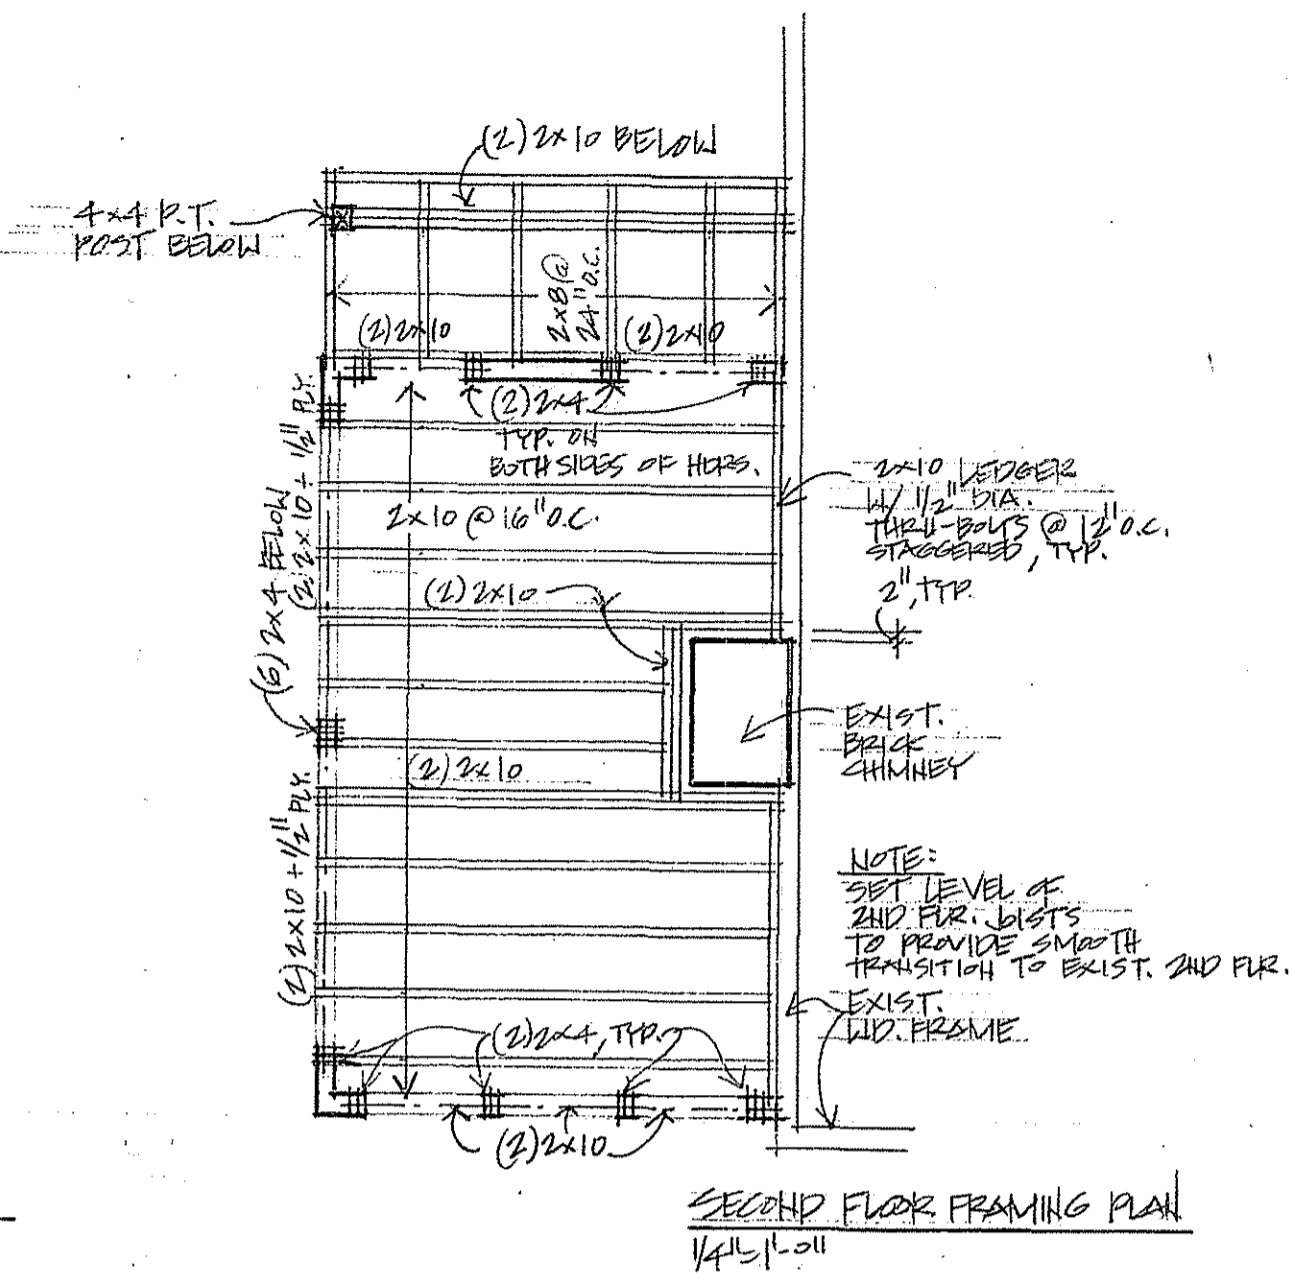 (2) 2x10 BELOW
4x4 P.T.
POST BELOW
2x8 @
24" O.C.
(2) 2x10
(2) 2x10
(2) 2x4
TYP. ON
BOTH SIDES OF HDRS.
(2) 2x10 + 1/2" PLY.
2x10 @ 16" O.C.
2x10 LEDGER
W/ 1/2" DIA.
THRU-BOLTS @ 12" O.C.
STAGGERED, TYP.
2", TYP.
(2) 2x10
(6) 2x4 BELOW
EXIST.
BRICK
CHIMNEY
(2) 2x10
(2) 2x10 + 1/2" PLY.
NOTE:
SET LEVEL OF
2ND FLR. JSTS
TO PROVIDE SMOOTH
TRANSITION TO EXIST. 2ND FLR.
EXIST.
WD. FRAME
(2) 2x4, TYP.
(2) 2x10
SECOND FLOOR FRAMING PLAN
1/4"=1'-0"